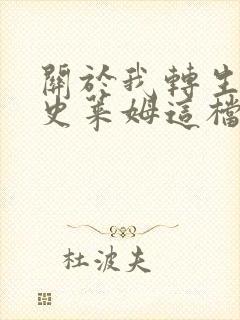 關於我轉生
史萊姆這檔
杜波夫